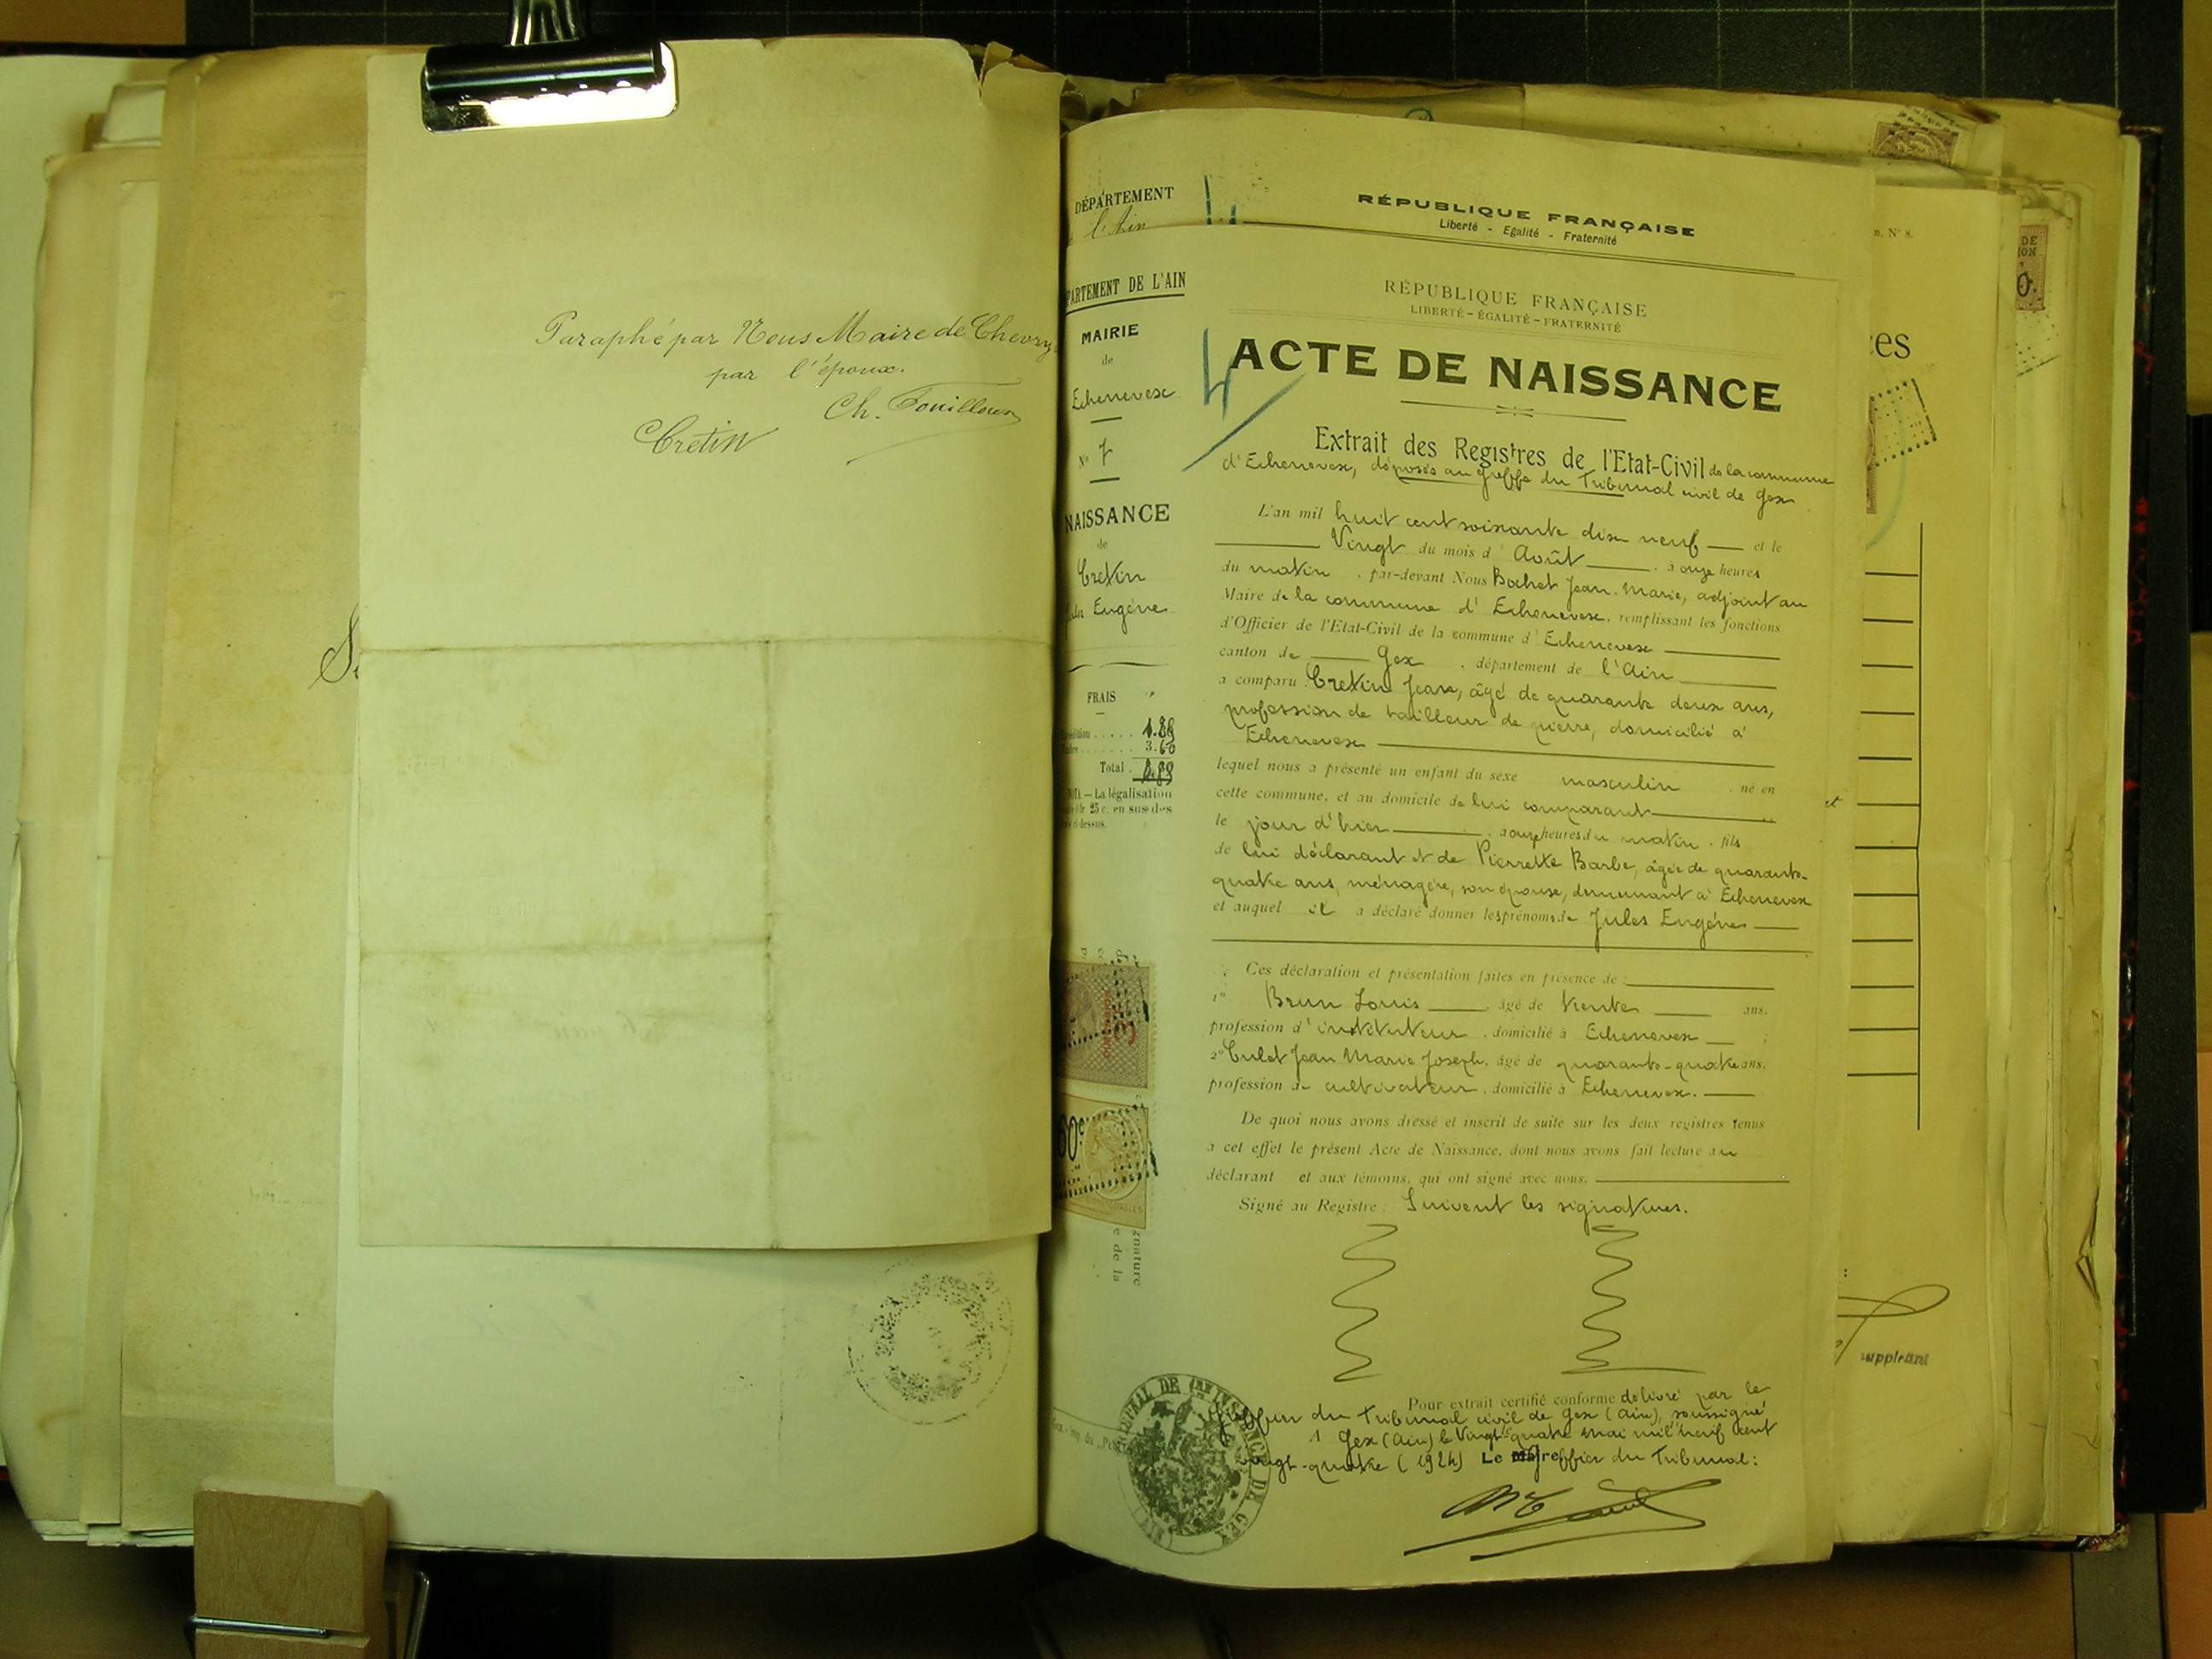 Paraphé par Nous Maire de Chevry
par l'époux.
Ch. Fouilloux
Cretin
DÉPARTEMENT
l'Ain
RÉPUBLIQUE FRANÇAISE
Liberté - Egalité - Fraternité
PARTEMENT DE L'AIN
MAIRIE
de
Echenevex
N° 7
NAISSANCE
de
Cretin
Eugène
FRAIS
3.60
Total
La légalisation
25 c. en sus des
dessus.
RÉPUBLIQUE FRANÇAISE
LIBERTÉ - ÉGALITÉ - FRATERNITÉ
ACTE DE NAISSANCE
Extrait des Registres de l'Etat-Civil de la commune
d'Echenevex, déposés au Greffe du Tribunal civil de Gex
L'an mil huit cent soixante dix neuf et le
Vingt du mois d' Août, à onze heures
du matin, par-devant Nous Bochet Jean-Marie, adjoint au
Maire de la commune d' Echenevex, remplissant les fonctions
d'Officier de l'Etat-Civil de la commune d' Echenevex
canton de Gex, département de l'Ain
a comparu Cretin Jean, âgé de quarante deux ans,
profession de tailleur de pierre, domicilié à
Echenevex
lequel nous a présenté un enfant du sexe masculin né en
cette commune, et au domicile de lui comparant
le jour d'hier, à onze heures du matin, fils
de lui déclarant et de Pierrette Barbe, âgée de quarante-
quatre ans, ménagère, son épouse, demeurant à Echenevex
et auquel il a déclaré donner les prénoms de Jules Eugène
Ces déclaration et présentation faites en présence de :
1° Brun Louis, âgé de trente ans,
profession d' instituteur, domicilié à Echenevex
2° Culet Jean Marie Joseph, âgé de quarante-quatre ans,
profession de cultivateur, domicilié à Echenevex.
De quoi nous avons dressé et inscrit de suite sur les deux registres tenus
à cet effet le présent Acte de Naissance, dont nous avons fait lecture au
déclarant et aux témoins, qui ont signé avec nous.
Signé au Registre : Suivent les signatures.
Pour extrait certifié conforme délivré par le
Greffier du Tribunal civil de Gex (Ain), soussigné
A Gex (Ain) le Vingt-quatre Mai mil neuf cent
vingt-quatre (1924) Le Greffier du Tribunal :
n. N° 8.
ces
suppléant